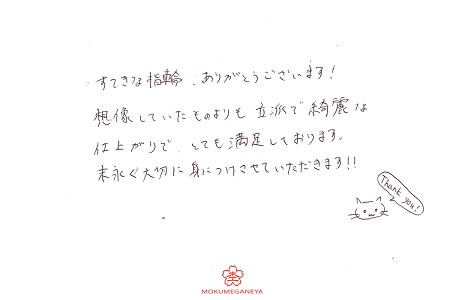 すてきな指輪、ありがとうございます!
想像していたものよりも立派で綺麗な
仕上がりで、とても満足しております。
末永く大切に身につけさせていただきます!!
Thank you!
MOKUMEGANEYA